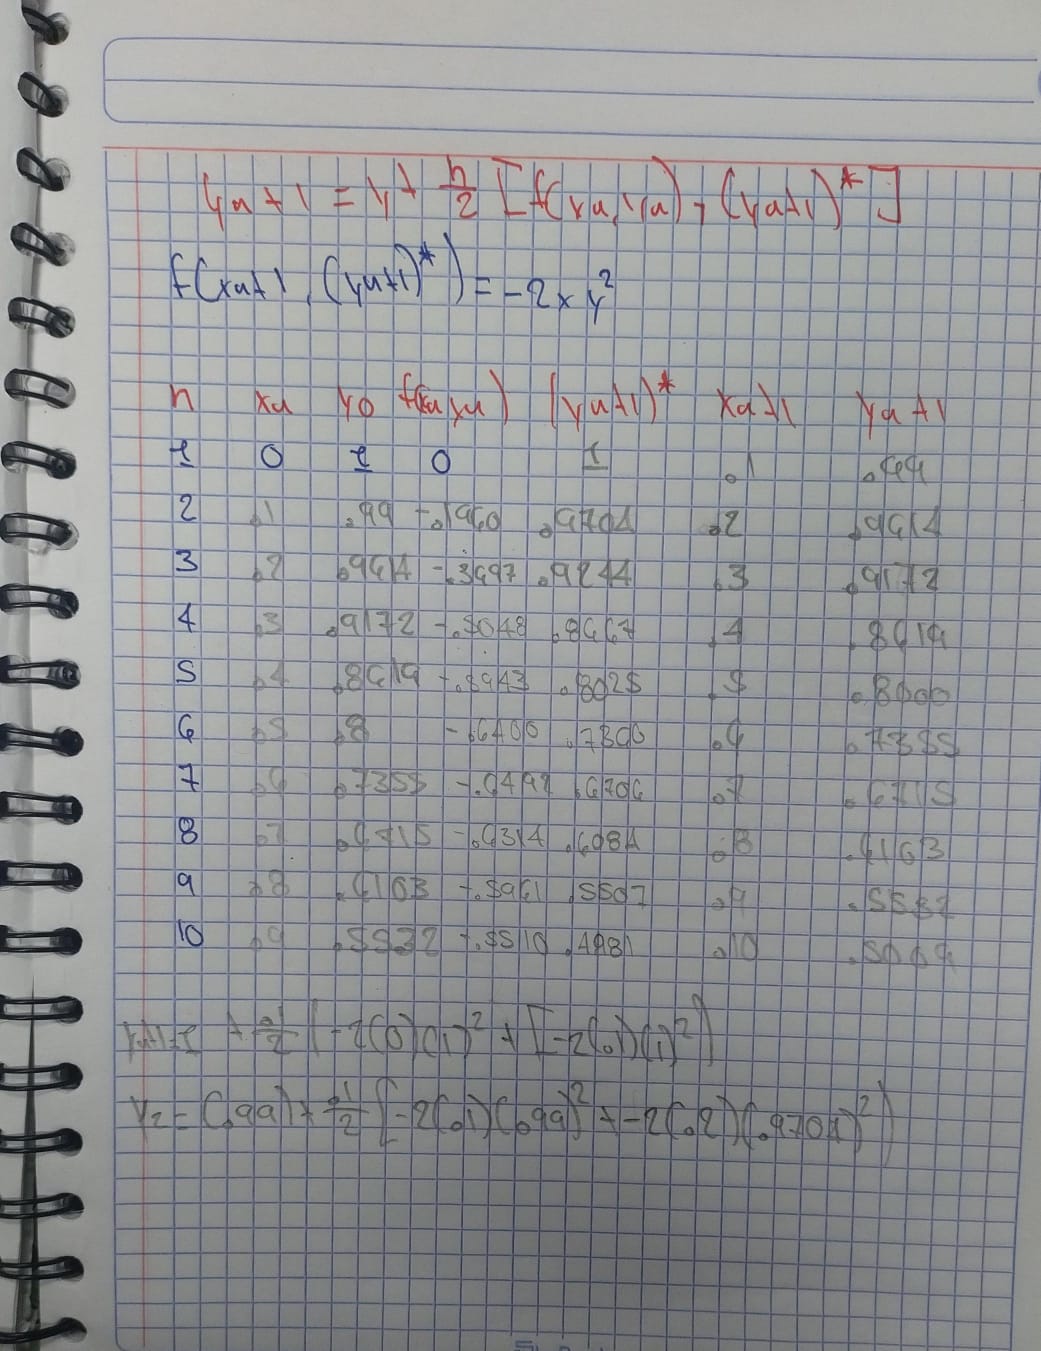 yn+1 = y+ h/2 [f(xn, yn), (yn+1)*]
f(xn+1, (yn+1)*) = -2xy²
n xn yo f(xn yn) (yn+1)* xn+1 yn+1
1 0 1 0 1 .1 .99
2 .1 .99 -.1960 .9704 .2 .9614
3 .2 .9614 -.3697 .9244 .3 .9172
4 .3 .9172 -.5048 .8667 .4 .8619
5 .4 .8619 -.5943 .8025 .5 .8000
6 .5 .8 -.6400 .7360 .6 .7355
7 .6 .7355 -.6492 .6706 .7 .6715
8 .7 .6715 -.6314 .6084 .8 .6103
9 .8 .6103 -.5961 .5507 .9 .5532
10 .9 .5532 -.5510 .4981 .10 .5009
yn+1=1 + .1/2 [-2(0)(1)² + [-2(.1)(1)²]
y2 = (.99) + .1/2 [-2(.1)(.99)² + -2(.2)(.9704)²]